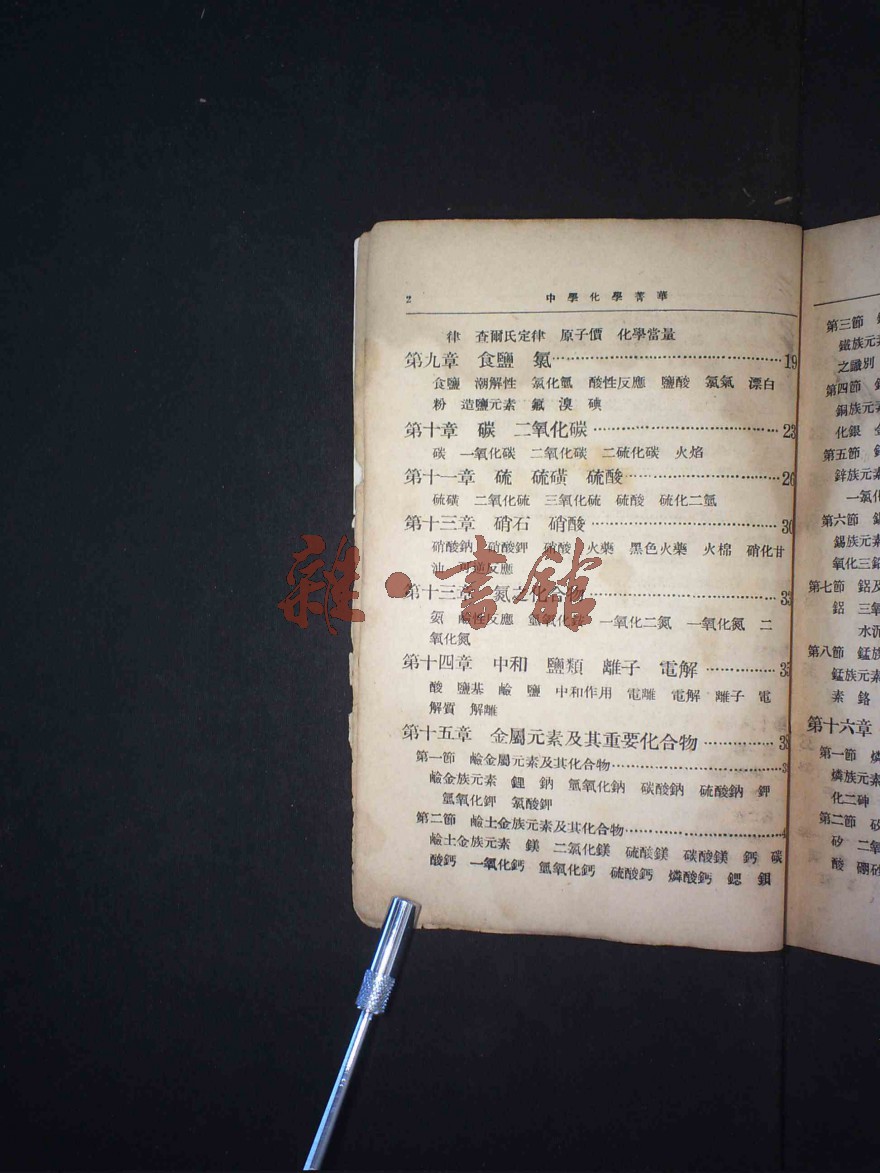 2 中學化學菁華
律 查爾氏定律 原子價 化學當量
第九章 食鹽 氯……19
食鹽 潮解性 氯化氫 酸性反應 鹽酸 氯氣 漂白
粉 造鹽元素 氟 溴 碘
第十章 碳 二氧化碳……23
碳 一氧化碳 二氧化碳 二硫化碳 火焰
第十一章 硫 硫磺 硫酸……26
硫磺 二氧化硫 三氧化硫 硫酸 硫化二氫
第十三章 硝石 硝酸……30
硝酸鈉 硝酸鉀 硝酸 火藥 黑色火藥 火棉 硝化甘
油 可逆反應
第十三章 氮之化合物……33
氨 鹼性反應 氫氧化銨 一氧化二氮 一氧化氮 二
氧化氮
第十四章 中和 鹽類 離子 電解……35
酸 鹽基 鹼 鹽 中和作用 電離 電解 離子 電
解質 解離
第十五章 金屬元素及其重要化合物……38
第一節 鹼金屬元素及其化合物……3
鹼金族元素 鋰 鈉 氫氧化鈉 碳酸鈉 硫酸鈉 鉀
氫氧化鉀 氯酸鉀
第二節 鹼土金族元素及其化合物……4
鹼土金族元素 鎂 二氯化鎂 硫酸鎂 碳酸鎂 鈣 碳
酸鈣 一氧化鈣 氫氧化鈣 硫酸鈣 燐酸鈣 鍶 鋇
第三節
鐵族元素
之識別
第四節
銅族元素
化銀
第五節 鋅
鋅族元素
一氯化
第六節 錫
錫族元素
氧化三鉛
第七節 鋁及
鋁 三氧
水泥
第八節 錳族
錳族元素
素 鉻
第十六章
第一節 燐
燐族元素
化二砷
第二節 矽
矽 二氧
酸 硼砂
雜·書館